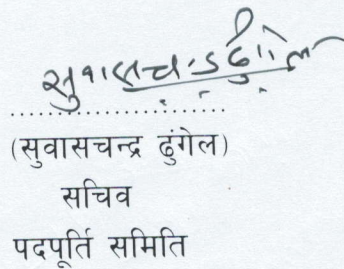 सुवासचन्द्र ढुंगेल
....................
(सुवासचन्द्र ढुंगेल)
सचिव
पदपूर्ति समिति